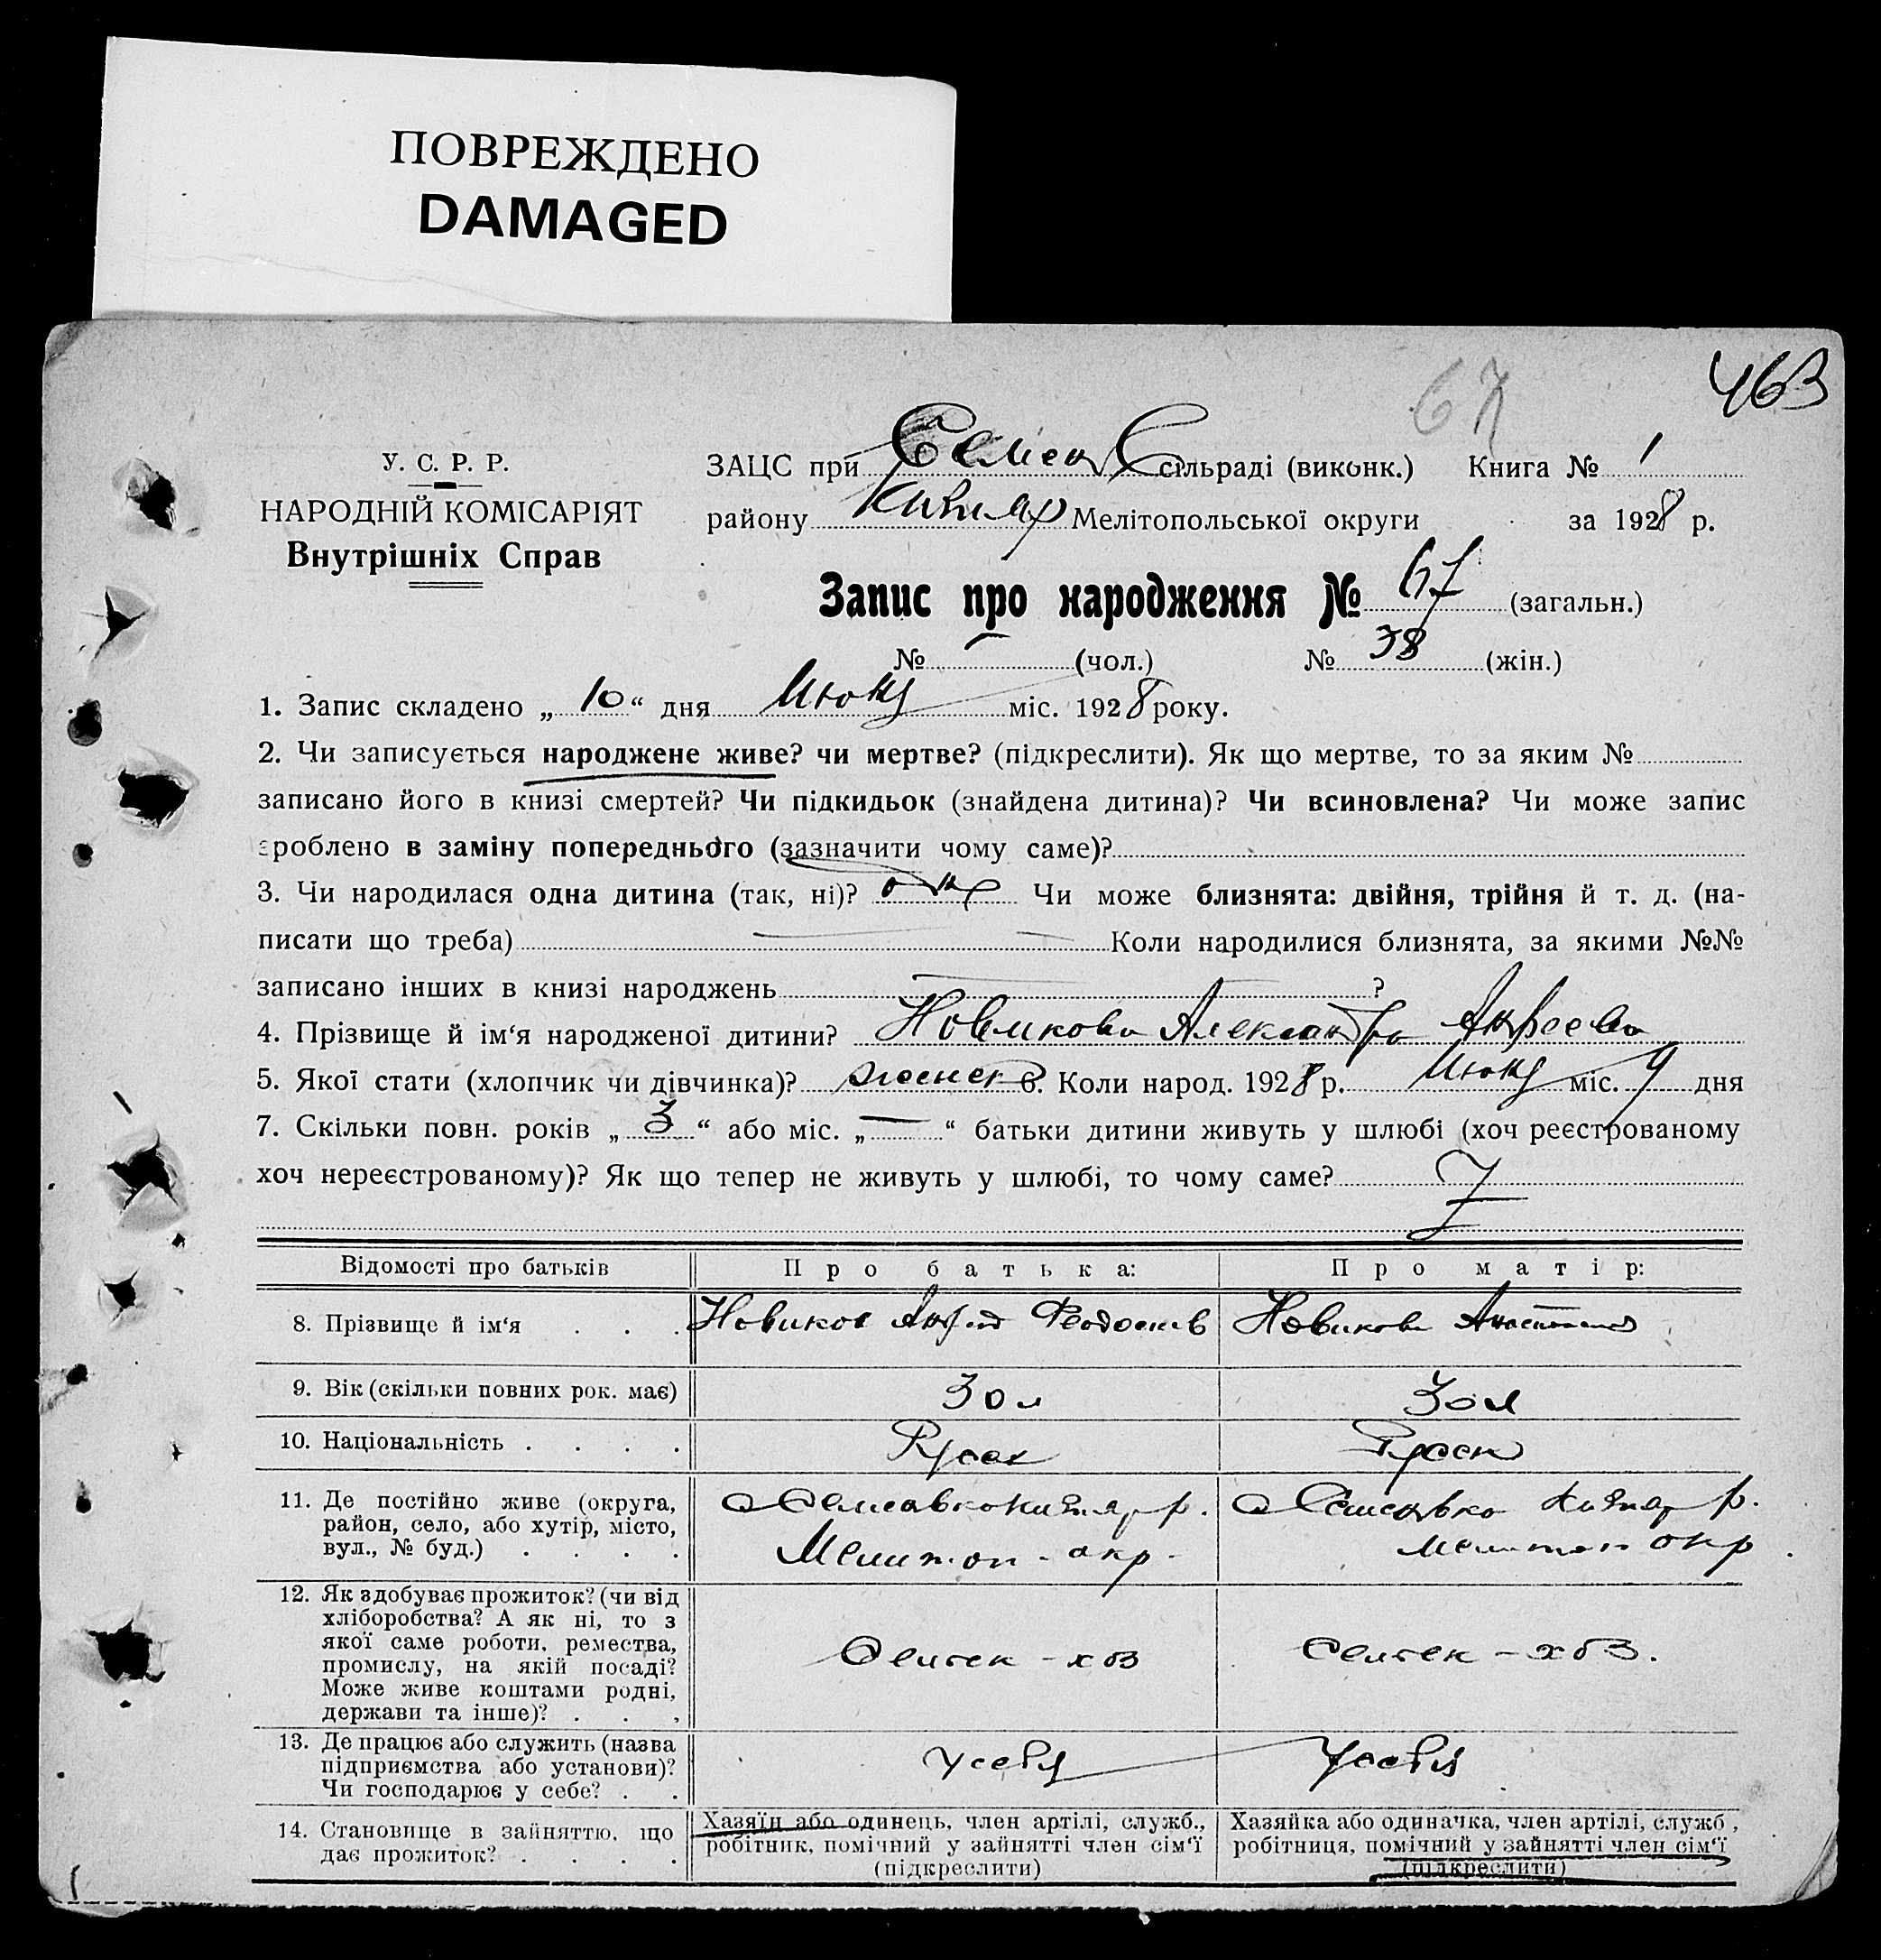 ПОВРЕЖДЕНО
DAMAGED
67
463
У. С. Р. Р.
НАРОДНІЙ КОМІСАРІЯТ
Внутрішніх Справ
ЗАЦС при сільраді (виконк.) Книга № 1
району Мелітопольської округи за 1928 р.
Запис про народження № 67 (загальн.)
№ — (чол.) № 38 (жін.)
1. Запис складено „ 10 “ дня міс. 1928 року.
2. Чи записується народжене живе? чи мертве? (підкреслити). Як що мертве, то за яким №
записано його в книзі смертей? Чи підкидьок (знайдена дитина)? Чи всиновлена? Чи може запис
зроблено в заміну попереднього (зазначити чому саме)?
3. Чи народилася одна дитина (так, ні)? Чи може близнята: двійня, трійня й т. д. (на-
писати що треба) — Коли народилися близнята, за якими №№
записано інших в книзі народжень — ?
4. Прізвище й ім‘я народженої дитини? Новикова Александра
5. Якої стати (хлопчик чи дівчинка)? женск 6. Коли народ. 1928 р. міс. 9 дня
7. Скільки повн. років „ 3 “ або міс. „ — “ батьки дитини живуть у шлюбі (хоч реєстрованому
хоч нереєстрованому)? Як що тепер не живуть у шлюбі, то чому саме?
Відомості про батьків Про батька: Про матір:
8. Прізвище й ім‘я . . . Новиков Новикова Анастасия
9. Вік (скільки повних рок. має) 30 л 30 л
10. Національність . . . . Русск Русск
11. Де постійно живе (округа,
район, село, або хутір, місто,
вул., № буд.) . . . .
р. р.
Мелитоп. окр. Мелитоп окр.
12. Як здобуває прожиток? (чи від
хліборобства? А як ні, то з
якої саме роботи, ремества,
промислу, на якій посаді?
Може живе коштами родні,
держави та інше)? . . .
Сельск-хоз Сельск-хоз.
13. Де працює або служить (назва
підприємства або установи)?
Чи господарює у себе? . .
у себя у себя
14. Становище в зайняттю, що
дає прожиток? . . . .
Хазяїн або одинець, член артілі, служб.,
робітник, помічний у зайнятті член сім‘ї
(підкреслити)
Хазяйка або одиначка, член артілі, служб,
робітниця, помічний у зайнятті член сім‘ї
(підкреслити)